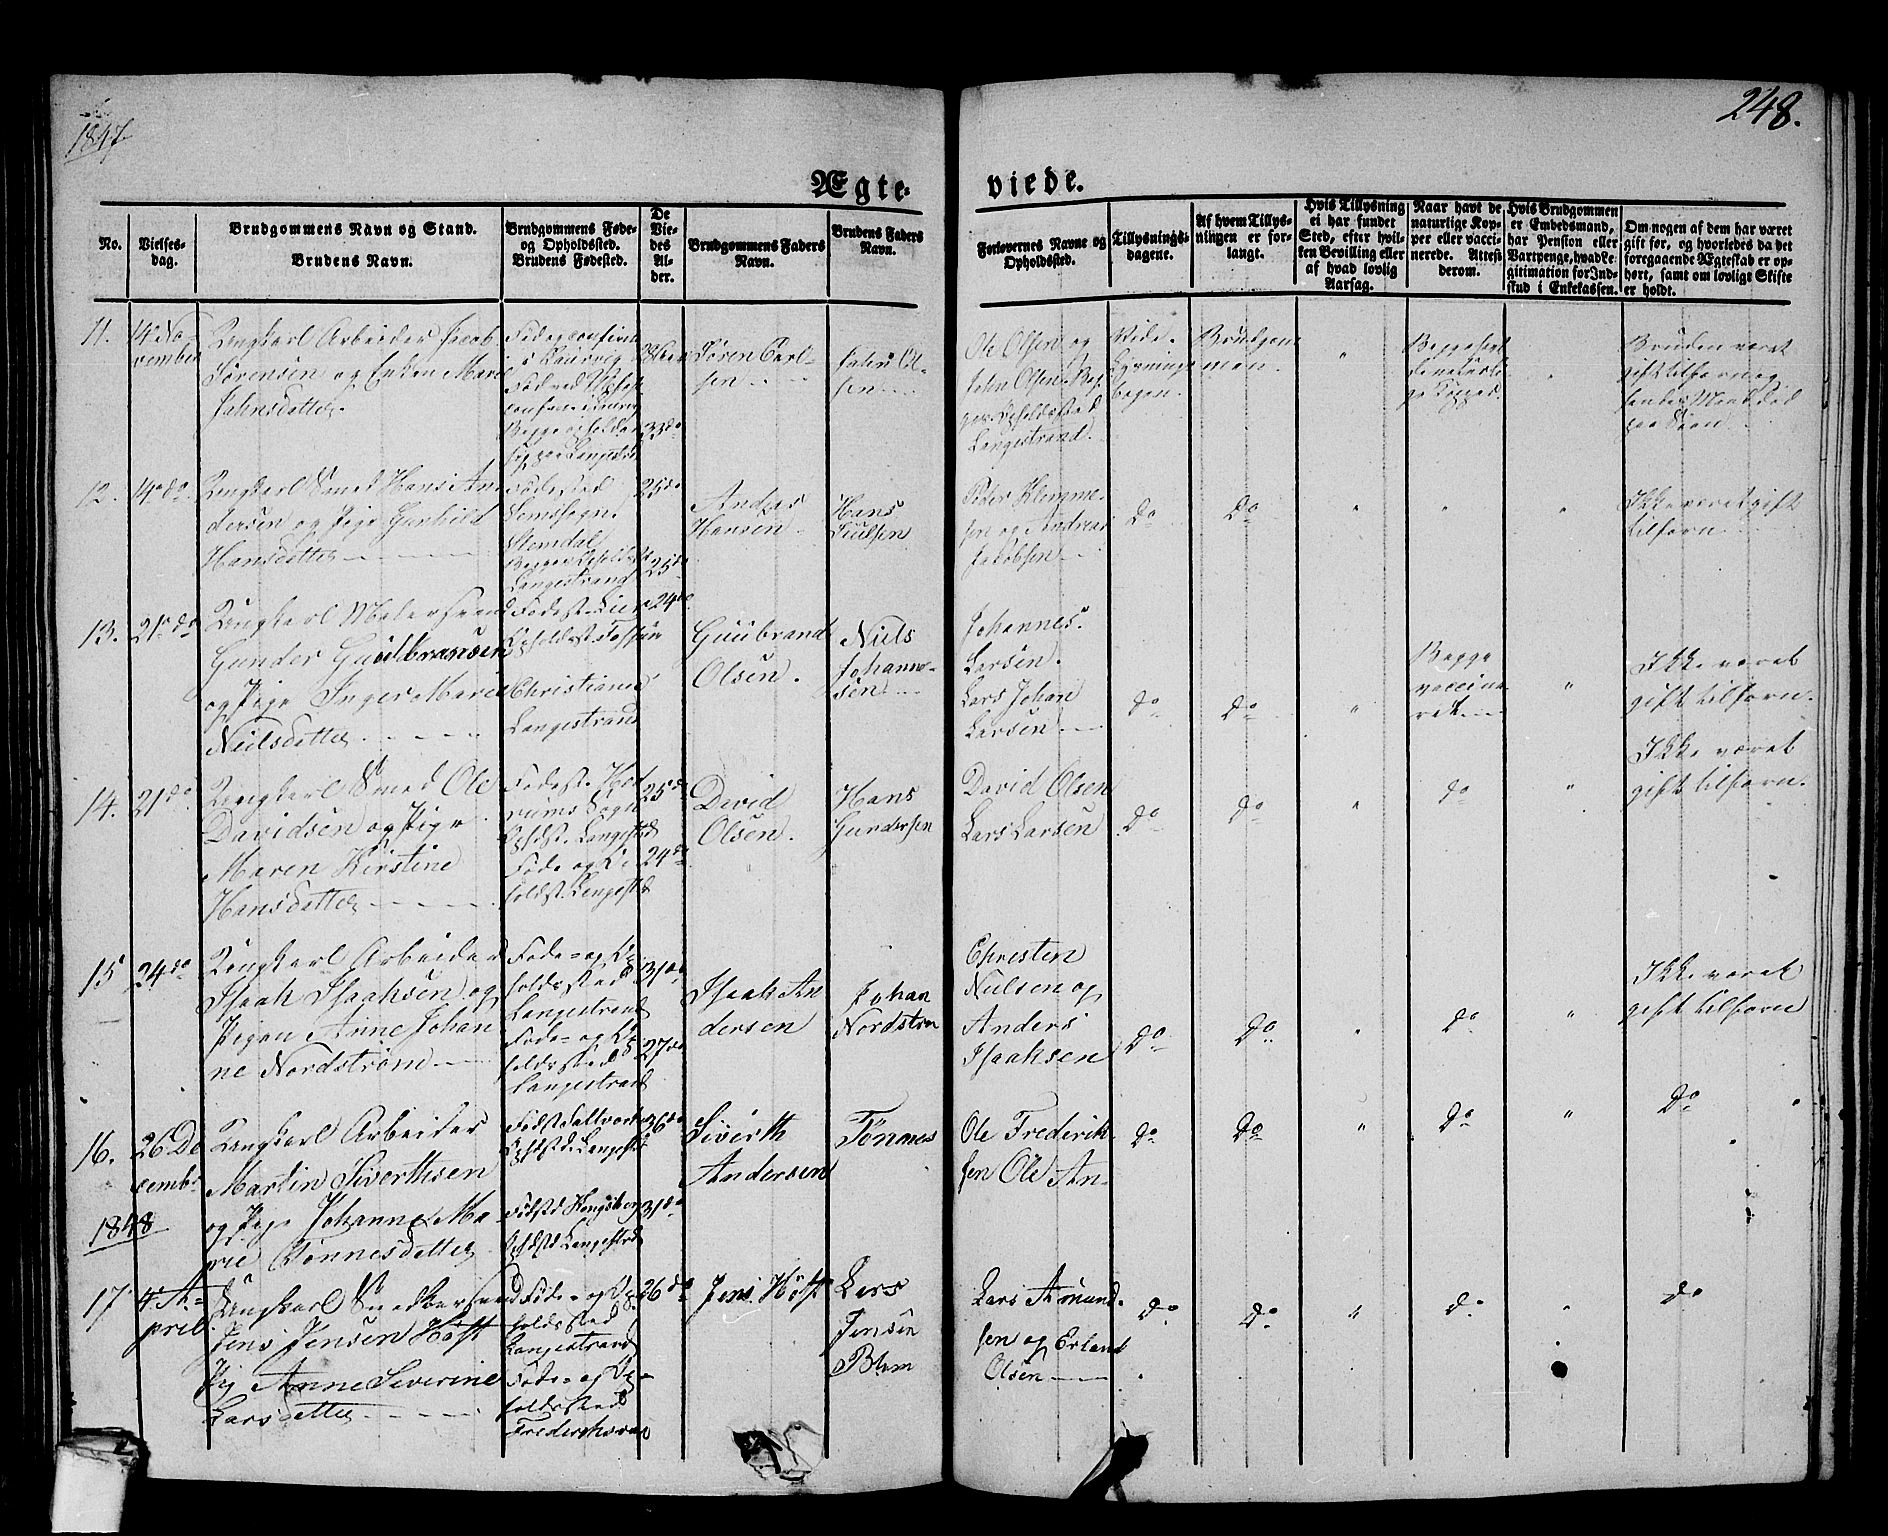 1847
248.
Ægte-
viede.
No.
Vielses-
dag.
Brudgommens Navn og Stand.
Brudens Navn.
Brudgommens Føde-
og Opholdssted.
Brudens Fødested.
De
Vie-
des
Al-
der.
Brudgommens Faders
Navn.
Brudens Faders
Navn.
Forlovernes Navne og
Opholdssted.
Tillysnings-
dagene.
Af hvem Tillys-
ningen er for-
langt.
Hvis Tillysning
ei har fundet
Sted, efter hvil-
ken Bevilling eller
af hvad lovlig
Aarsag.
Naar havt de
naturlige Kop-
per eller vacci-
nerede. Attest
derom.
Hvis Brudgommen
er Embedsmand,
har Pension eller
Vartpenge, hvad Le-
gitimation for Ind-
skud i Enkekassen.
Om nogen af dem har været
gift før, og hvorledes da det
foregaaende Ægteskab er op-
hørt, samt om lovligt Skifte
er holdt.
11.
14 No
vember
Ungkarl Arbeider Jacob
Sørensen og Enken Marie
Jahnsdatter
33 do
Søren Carl-
sen
Jahn Ol-
sen
Ole Olsen og
Jahn Olsen
Langestrand
Brudgom-
men.
"
Bruden været
gift tilforn og
12.
14 do
Ungkarl Smed Hans An-
dersen og Pige Gunhild
Hansdatter
Fødested
Langestrand
25 do
25 do
Hansen
Hans
Peder Klemme-
sen og Andreas
Jakobsen
do
do
"
"
"
Ikke været gift
tilforn
13.
21 do
Ungkarl Matersvend
Gunder Guulbransen
og Pige Inger Marie
Nielsdatter
Fødest. Lier
Christiania
Langestrand
24 do
Guubrand
Olsen.
Niels
Johanne-
sen
Johannes
Larsen.
Lars Johan
Larsen
do
do
"
Begge
vaccine-
ret
"
Ikke været
gift tilforn.
14.
21 do
Ungkarl Smed Ole
Davidsen og Pige
Maren Kirstine
Hansdatter
Fødest. Hed
rums Sogn
Opholdst. Langestrd
Føde og Op
holdst. Langestrd
25 do
24 do
David
Olsen.
Hans
Gundersen
David Olsen
Lars Larsen
do
do
"
do
"
Ikke været
gift tilforn.
15
24 do
Ungkarl Arbeider
Isaak Isaaksen og
Pigen Anne Johan
ne Nordstrøm
Føde- og Op
holdssted
Langestrand
Føde- og Op
holdssted
Langestrand
31 do
27 do
Isaak An
dersen
Johan
Nordstrøm
Christen
Nielsen og
Anders
Isaaksen
do
do
"
do
"
Ikke været
gift tilforn
16.
26 De
cembr
Ungkarl Arbeider
Martin Siverthsen
og Pige Johanne Ma-
rie Tønnesdatter
Fødstd Kongsberg
Opholdstd Langestrd
36 do
31 do
Siverth
Andersen
Tønnes
Ole Frederik-
sen Ole An-
do
do
"
do
"
do
1848
17
4 A-
pril.
Ungkarl Smedkersvend
Jens Jensen Høst
Pig Anne Severine
Larsdatter
Føde- og Op
holdssted
Langestrand
Føde- og Op-
holdssted
Frederiksvær
26 do
Jens Høst
Lars
Jensen
Blom
Lars Amund-
sen og Erland
Olsen
do
do
"
do
"
do